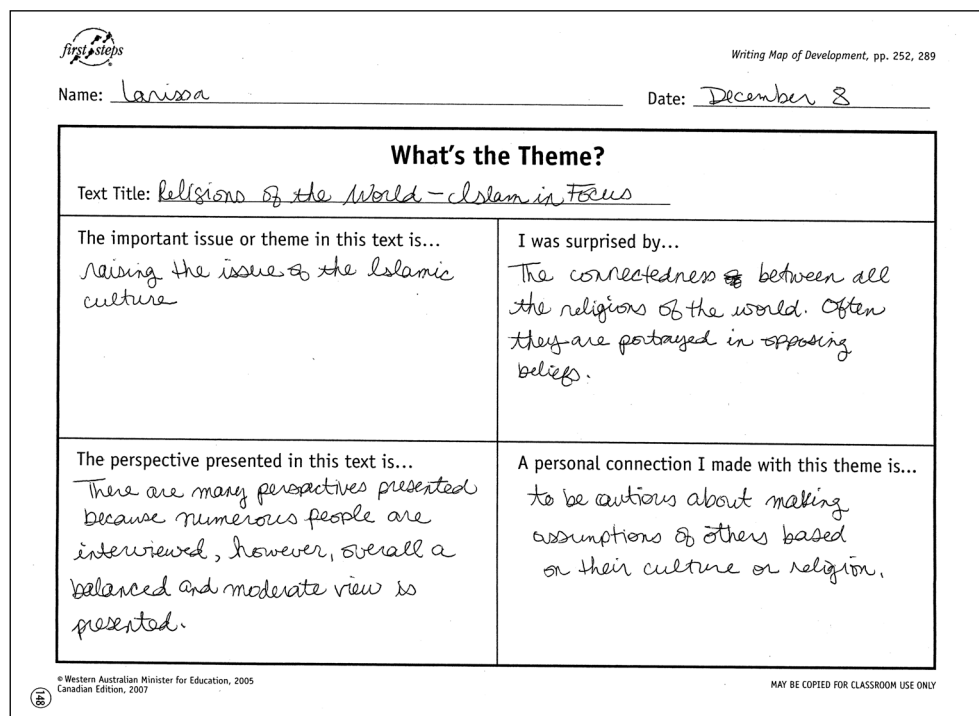 first steps
Writing Map of Development, pp. 252, 289
Name: Larissa
Date: December 8
What's the Theme?
Text Title: Religions of the World - Islam in Focus
The important issue or theme in this text is...
raising the issue of the Islamic
culture
I was surprised by...
The connectedness between all
the religions of the world. Often
they are portrayed in opposing
beliefs.
The perspective presented in this text is...
There are many perspactives presented
because numerous people are
interviewed, however, overall a
balanced and moderate view is
presented.
A personal connection I made with this theme is...
to be cautious about making
assumptions of others based
on their culture or religion.
© Western Australian Minister for Education, 2005
Canadian Edition, 2007
148
MAY BE COPIED FOR CLASSROOM USE ONLY